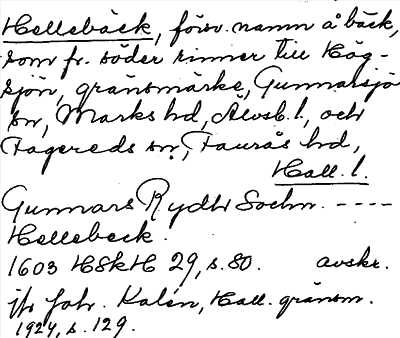 Hellebäck, försv. namn å bäck,
som fr. söder rinner till Hög-
sjön, gränsmärke, Gunnarsjö
sn, Marks hd, Älvsb. l., och
Fagereds sn, Faurås hd,
Hall. l.
Gunnars Rydh Sochn. ----
Hellebeck.
1603 HSkH 29, s. 80. avskr.
jfr Joh. Kalén, Hall. gränsm.
1924, s. 129.